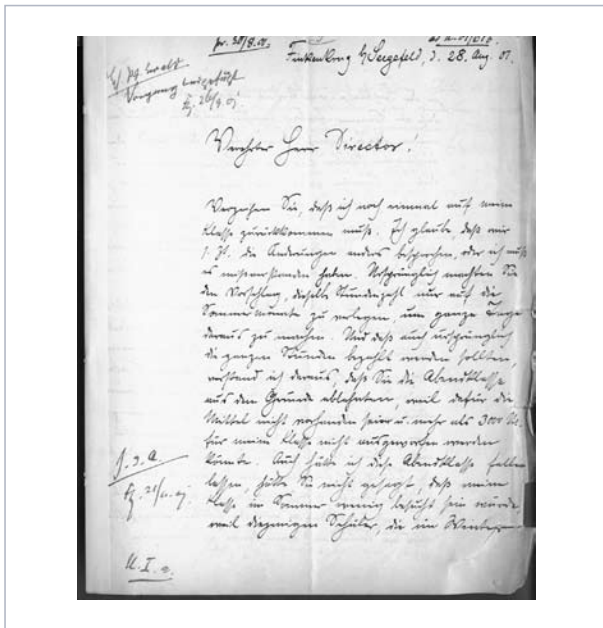 pr. 30/8. 01.
Finkenkrug b/Seegefeld, d. 28. Aug. 01.
Vorgang
Verehrter Herr Director!
Verzeihen Sie, daß ich noch einmal auf meine
Klasse zurückkommen muß. Ich glaube, daß wir
s. Zt. die Änderungen anders besprachen, oder ich muß
es mißverstanden haben. Ursprünglich machten Sie
den Vorschlag, dieselbe Stundenzahl nur auf die
Sommermonate zu verlegen, um ganze Tage
daraus zu machen. Und daß auch ursprünglich
die ganzen Stunden bezahlt werden sollten,
verstand ich daraus, daß Sie die Abendklasse
aus dem Grunde ablehnten, weil dafür die
Mittel nicht vorhanden seien u. mehr als 3000 Mk.
für meine Klasse nicht ausgeworfen werden
könnte. Auch hätte ich diese Abendklasse fallen
lassen, hätten Sie nicht gesagt, daß meine
Klasse im Sommer wenig besucht sein würde,
weil diejenigen Schüler, die im Winter
z. d. A.
U. I.